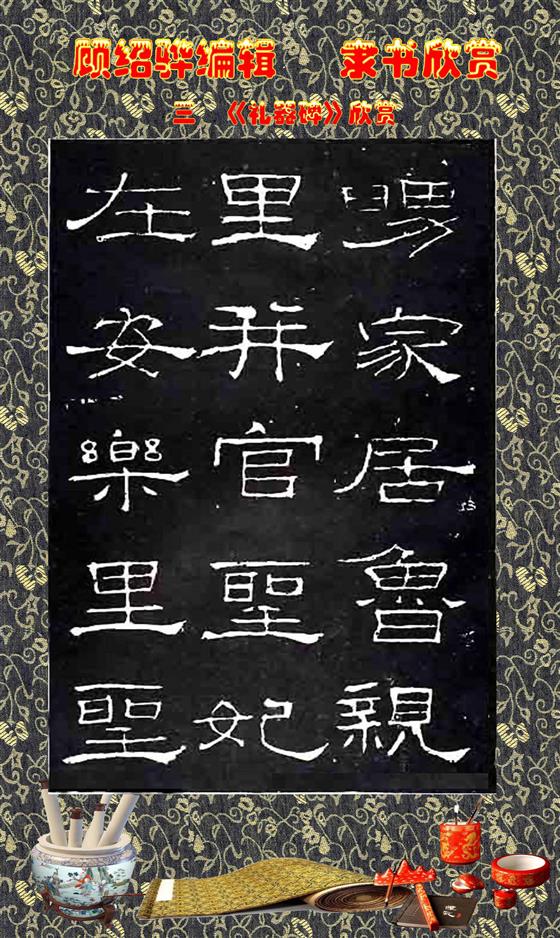 顾绍骅编辑 隶书欣赏
三 《礼器碑》欣赏
舅家居魯親
里并官聖妃
在安樂里聖